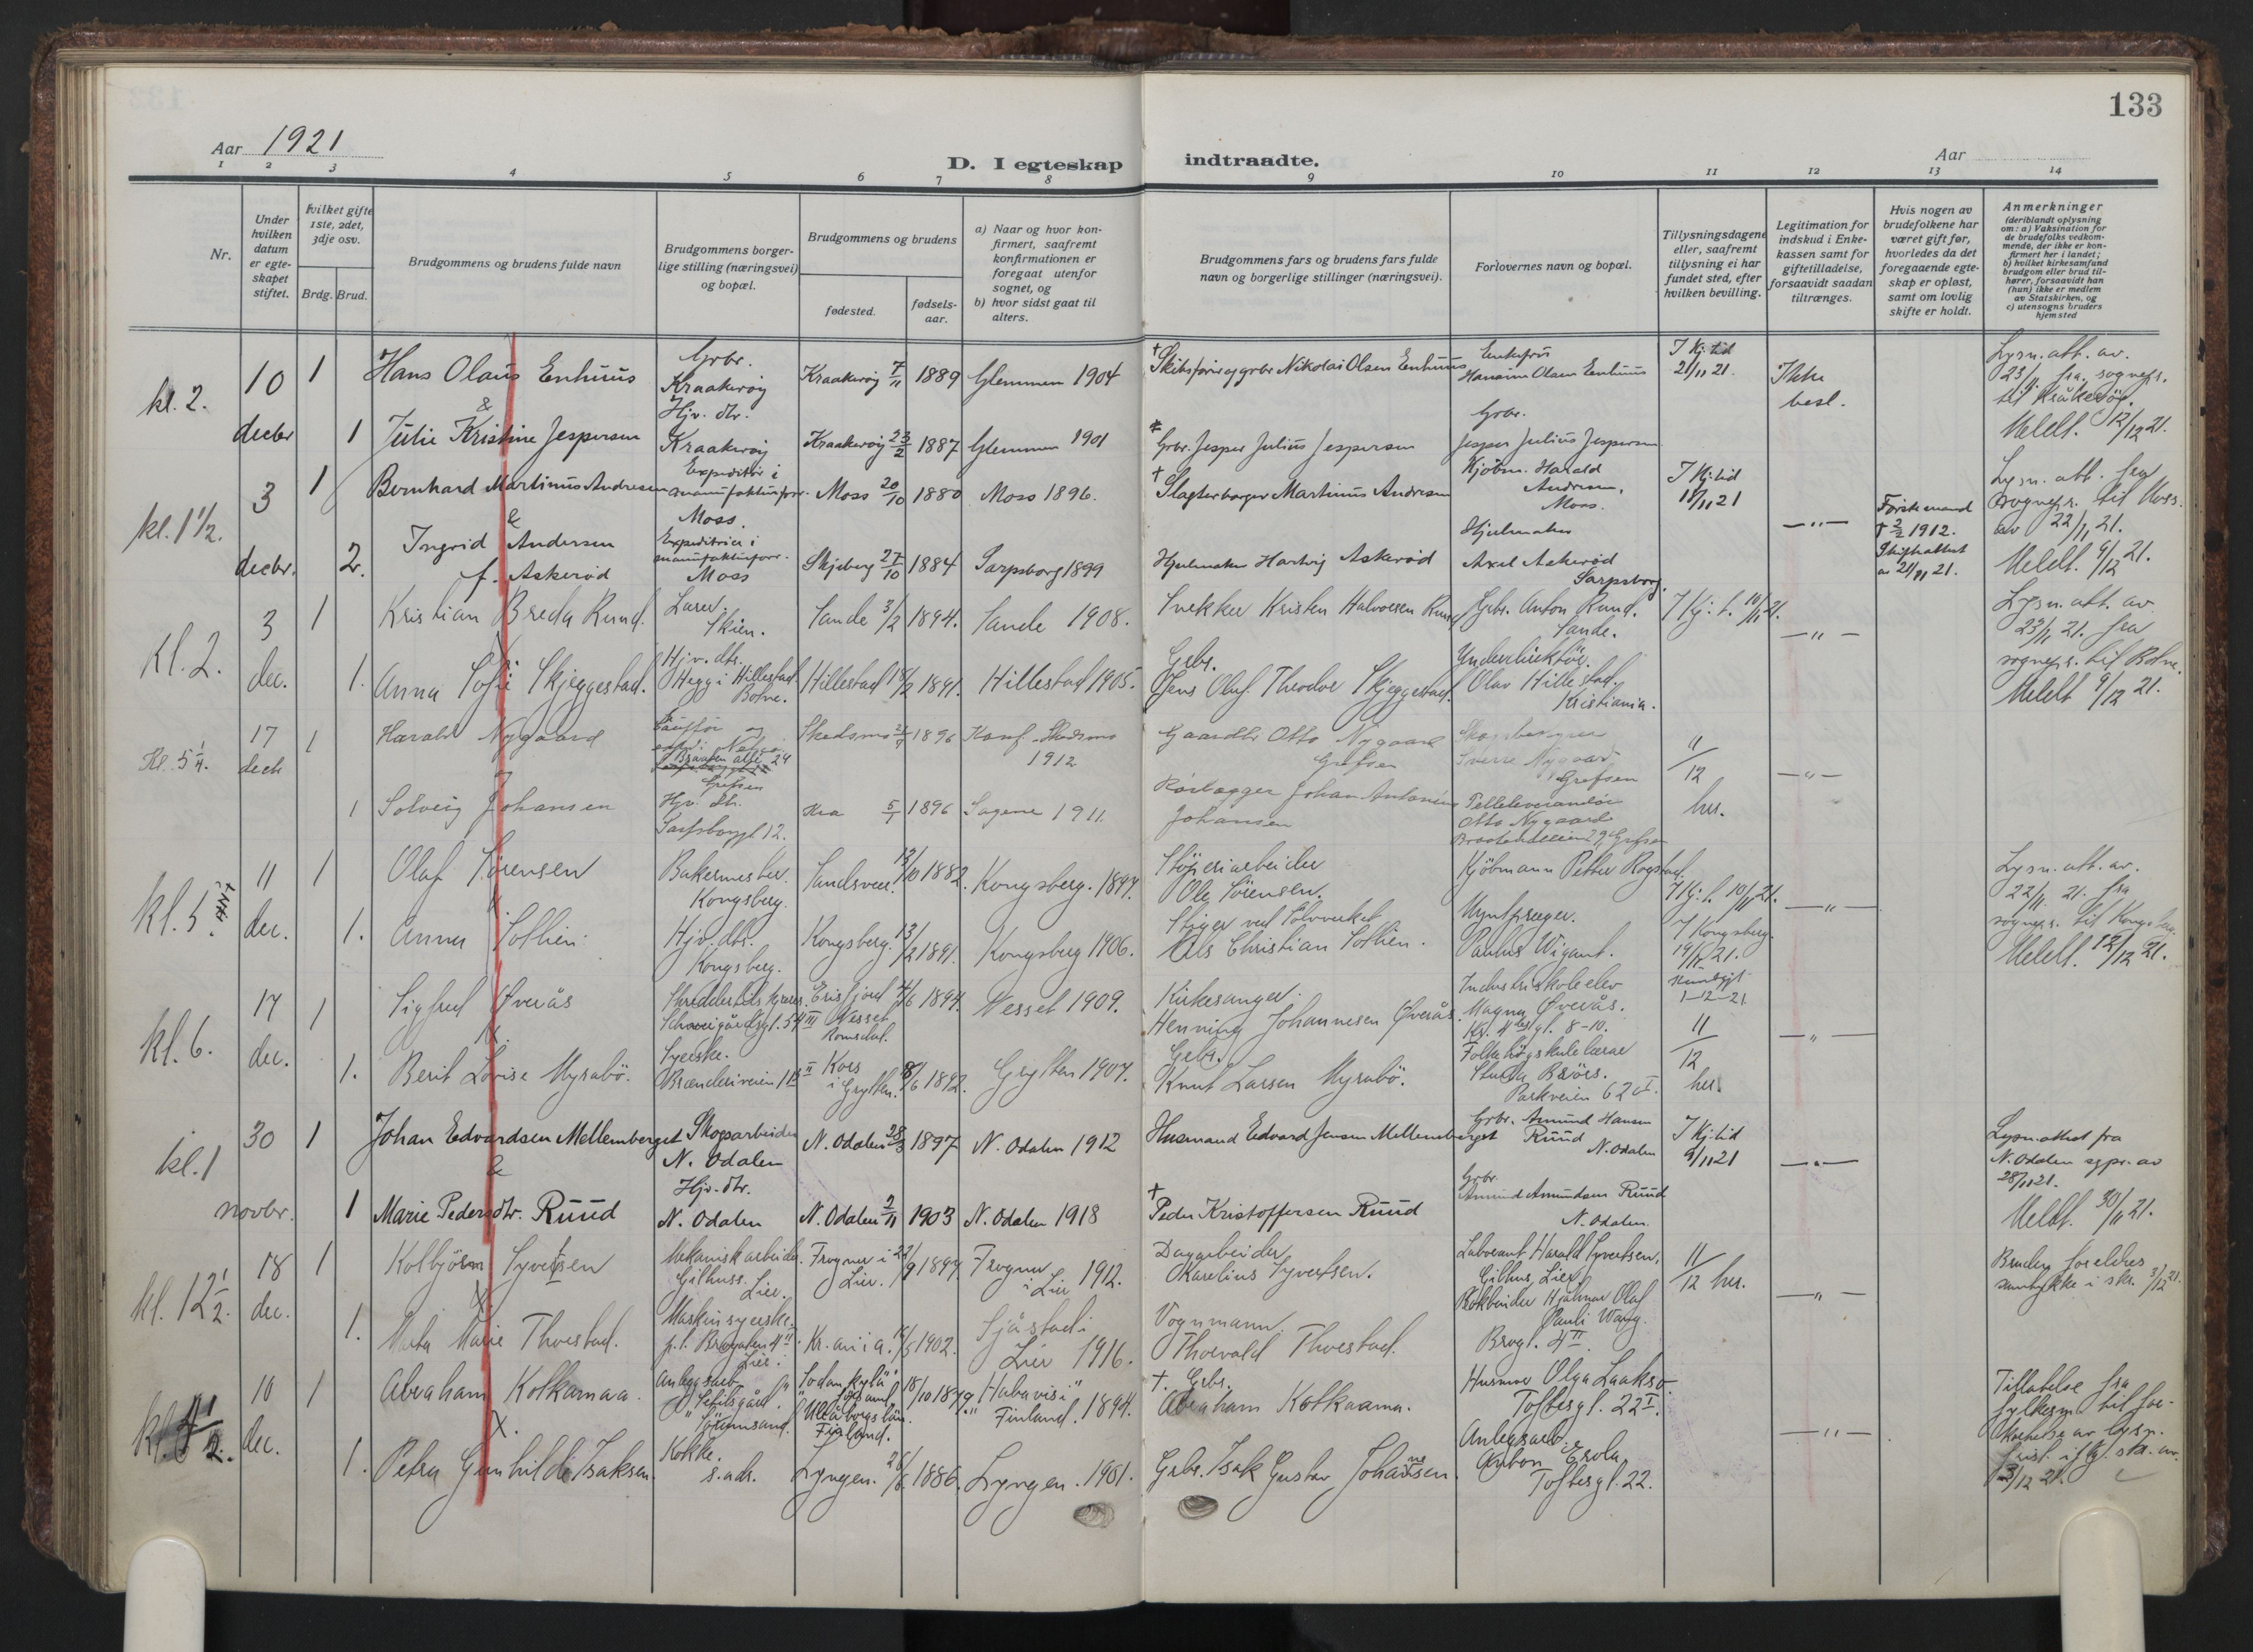 133
Aar 1921
D. I egteskap indtraadte.
Aar
1 2 3 4 5 6 7 8 9 10 11 12 13 14
Nr.
Under hvilken datum er egteskapet stiftet.
Hvilket gifte 1ste, 2det, 3dje osv.
Brdg. Brud.
Brudgommens og brudens fulde navn
Brudgommens borgerlige stilling (næringsvei) og bopæl.
Brudgommens og brudens
fødested.
fødsels-aar.
a) Naar og hvor konfirmert, saafremt konfirmationen er foregaat utenfor sognet, og
b) hvor sidst gaat til alters.
Brudgommens fars og brudens fars fulde navn og borgerlige stillinger (næringsvei).
Forlovernes navn og bopæl.
Tillysningsdagene eller, saafremt tillysning ei har fundet sted, efter hvilken bevilling.
Legitimation for indskud i Enkekassen samt for giftetilladelse, forsaavidt saadan tiltrænges.
Hvis nogen av brudefolkene har været gift før, hvorledes da det foregaaende egteskap er opløst, samt om lovlig skifte er holdt.
Anmerkninger (deriblandt oplysning om: a) Vaksination for de brudefolks vedkommende, der ikke er konfirmert her i landet; b) hvilket kirkesamfund brudgom eller brud tilhører, forsaavidt han (hun) ikke er medlem av Statskirken, og c) utensogns bruders hjemsted
kl. 2. 10 decbr 1 Hans Olaus Enhuus Grbr. Kraakerøy Kraakerøy 7/11 1889 Glemmen 1904 † Skibsfører og grbr Nikolai Olsen Enhuus Enkefru Hanaine Olsen Enhuus I Kj.tid 21/11 21. Ikke besl. Lysn. att. av. 23/11 fra sognepr. til Kråkerøy. Meldt. 12/12 21.
&
1 Julie Kristine Jespersen Hjv. dtr. Kraakerøy Kraakerøy 23/2 1887 Glemmen 1901 Grbr. Jesper Julius Jespersen Grbr. Jesper Julius Jespersen
kl. 1 1/2. 3 decbr. 1 Bernhard Martinus Andresen Expeditør i manufakturforr. Moss. Moss 20/10 1880 Moss 1896. † Slagterborger Martinus Andresen Kjøbm. Harald Andresen, Moss. I Kj.tid 18/11 21 —"— Første mand † 2/2 1912. Skifteattest av 21/11 21. Lysn. att. fra sognepr. til Moss. av 22/11 21. Meldt. 9/12 21.
&
2. Ingrid Andersen f. Askerød Expeditrice i manufakturforr. Moss Skjeberg 27/10 1884 Sarpsborg 1899 Hjulmaker Hartvig Askerød Hjulmaker Axel Askerød Sarpsborg.
Kl. 2. 3 dec. 1 Kristian Breda Rund. Lærer. Skien. Sande 3/2 1894. Sande 1908. Snekker Kristen Halvorsen Rund Grbr. Anton Rund. Sande. I Kj: t. 10/11 21. —"— Lysn. att. av. 23/11 21. fra sognepr. til Botne. Meldt 9/12 21.
1. Anna Sofie Skjeggestad. Hjv. dtr. Hegg i Hillestad Botne. Hillestad 18/2 1891. Hillestad 1905. Grbr. Jens Olaf Theodor Skjeggestad. Olav Hillestad. Kristiania.
Kl. 5 1/4. 17 decb 1 Harald Nygaard Grefsen Skedsmo 1896 Konf. Skedsmo 1912 Gaardbr Otto Nygaard Grefsen Sverre Nygaard Grefsen 11/12 her. —"—
1 Solveig Johansen Hjv. dtr. Sarpsborggt 12. Kra 5/1 1896 Sagene 1911. Rørlægger Johan Antonius Johansen Otto Nygaard Grefsen
kl. 5. 11 dec. 1 Olaf Sørensen Bakermester. Kongsberg. Sandsvær. 13/10 1882. Kongsberg. 1897. Støperiarbeider Ole Sörensen. Kjöbmann Petter Rogstad. I Kj: t. 10/11 21. I Kongsberg. 19/11 21. —"— Lysn. att. av. 22/11 21. fra sognepr. til Kongsberg. Meldt. 12/12 21.
1. Anna Sollien. Hjv. dtr. Kongsberg. Kongsberg. 13/2 1891. Kongsberg 1906. Stiger ved Sølvverket Nils Christian Sollien. Myntpræger. Paulus Wigant.
kl. 6. 17 dec. 1 Sigfred Øverås Schweigårdsgt. 54 III Erisfjord Nesset Romsdal. 4/6 1894. Nesset 1909. Kirkesanger. Henning Johannesen Øverås Industriskoleelev Magnus Øverås. kundgjt 1-12-21 11/12 her. —"—
1. Berit Lovise Myrabö. Syerske. Brænderiveien II Kors i Grytten. 8/6 1892. Grytten 1907. Grbr. Knut Larsen Myrabö. Folkehögskulelærar Parkveien 62 I.
kl. 1 30 novbr. 1 Johan Edvardsen Mellemberget Skogsarbeider N. Odalen N. Odalen 28/3 1897 N. Odalen 1912 Husmand Edvard Jensen Mellemberget Grbr. Amund Hansen Ruud N. Odalen I Kj.tid 9/11 21 —"— Lysn.attest fra N. Odalen sgpr. av 28/11 21. Meldt. 30/11 21.
&
1 Marie Pedersdtr. Ruud Hjv. dtr. N. Odalen N. Odalen 2/11 1903 N. Odalen 1918 † Peder Kristoffersen Ruud Grbr. Amund Amundsen Ruud N. Odalen.
kl. 12 1/2. 18 dec. 1 Kolbjörn Syvertsen Mekanisk arbeider. Gilhus. Lier. Frogner i Lier. 22/9 1897. Frogner i Lier 1912. Dagarbeider Karelius Syvertsen. Laborant Harald Syvertsen, Gilhus, Lier. 11/12 her. —"— Brudens foreldres samtykke i skr. 3/12 21.
1. Marta Marie Thorstad. Maskinsyerske. p.t. Brogaten 4 II Lier Kr.ania. 1902. Sjåstad i Lier 1916. Vognmann. Thorvald Thorstad. Bokbinder Hjalmar Olaf Pauli Wang. Brogt. 4 II.
kl. 4 1/2. 10 dec. 1 Abraham Kolkamaa. Anleggsarb. Sörumsand. "Sodankylä" Uleåborgs län. Finland. 18/10 1879. Finland. 1894. †. Grbr. Abraham Kolkaama. Husmor Olga Laakso. Toftesgt. 22 I. —"— Tillatelse fra fylkesm. til for-
1. Petra Gunhilde Isaksen. Kokke. s. ads. Lyngen. 26/6 1886. Lyngen. 1901. Grbr. Isak Gustav Johannesen. Anleggsarb. Anton Erola, Toftesgt. 22.